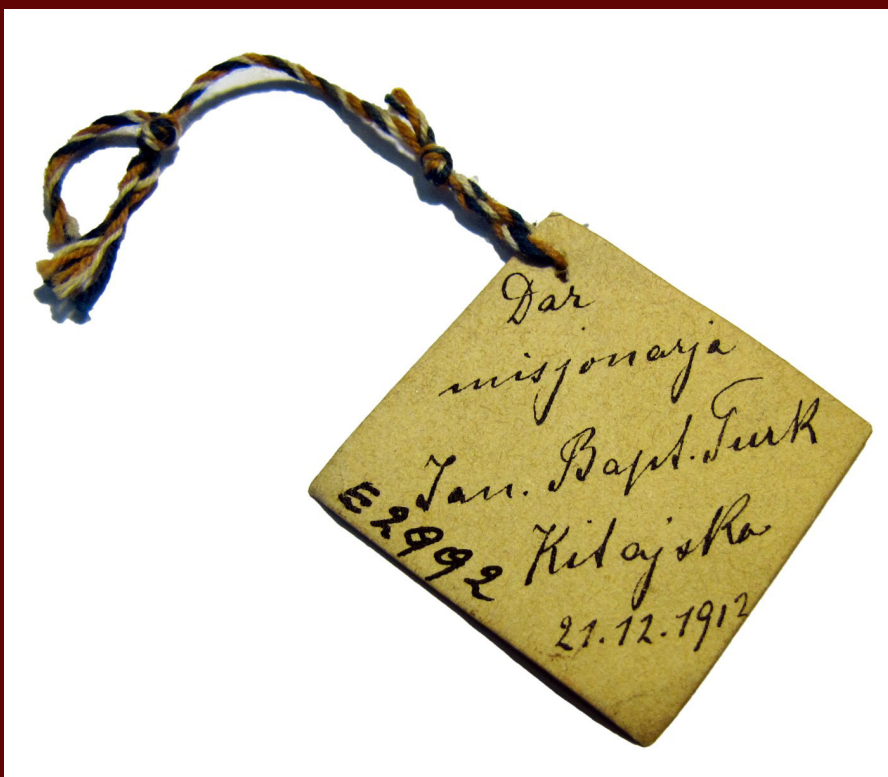 Dar
misjonarja
Jan. Bapt. Turk
Kitajska
21.12.1912
E2992